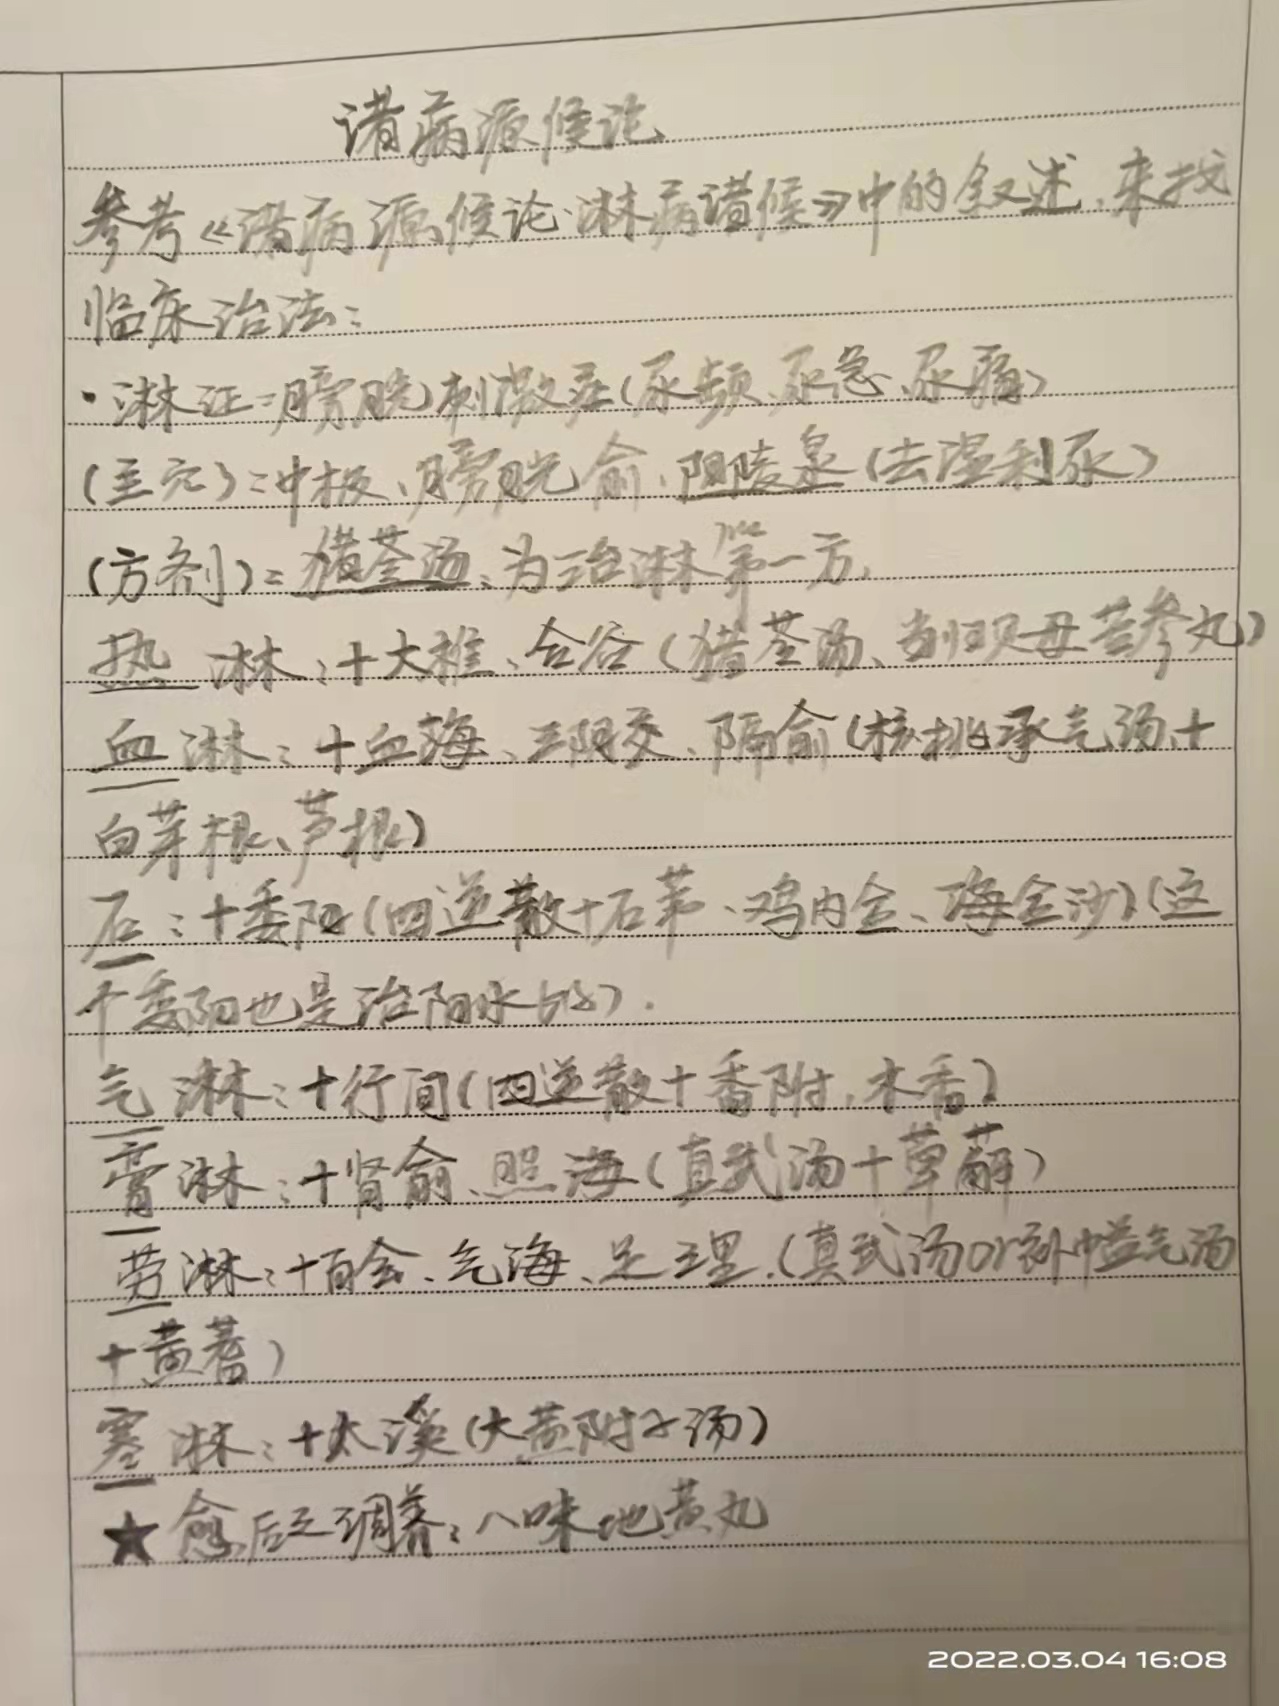 诸病源候论
参考《诸病源候论·淋病诸候》中的叙述，来找
临床治法：
·淋证：膀胱刺激症（尿频、尿急、尿痛）
（主穴）：中极、膀胱俞、阴陵泉（去湿利尿）
（方剂）：猪苓汤：为治淋第一方，
热淋：+大椎、合谷（猪苓汤、当归贝母苦参丸）
血淋：+血海、三阴交、隔俞（核桃承气汤+
白茅根、芦根）
石：+委阳（四逆散+石苇、鸡内金、海金沙）（这
个委阳也是治阴水的）.
气淋：+行间（四逆散+香附，木香）
膏淋：+肾俞、照海（真武汤+萆薢）
劳淋：+百会、气海、足三里.（真武汤or补中益气汤
+黄蓍）
寒淋：+太溪（大黄附子汤）
★愈后之调养：八味地黄丸
2022.03.04 16:08